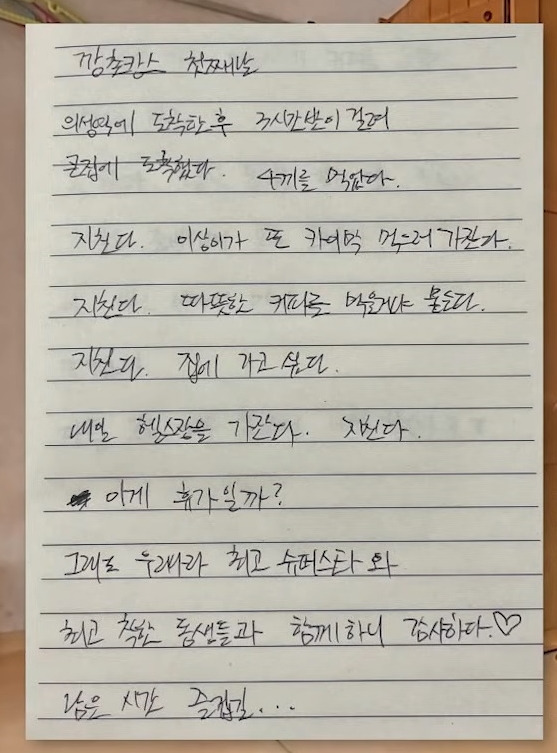 깡촌캉스 첫째날
의성역에 도착한 후 3시간반이 걸려
큰집에 도착했다. 4끼를 먹었다.
지친다. 이상이가 또 카이막 먹으러 가잔다.
지친다. 따뜻한 커피를 먹을거냐 묻는다.
지친다. 집에 가고 싶다.
내일 헬스장을 가잔다. 지친다.
이게 휴가일까?
그래도 우리나라 최고 슈퍼스타와
최고 착한 동생들과 함께하니 감사하다.♡
남은 시간 즐겁길...